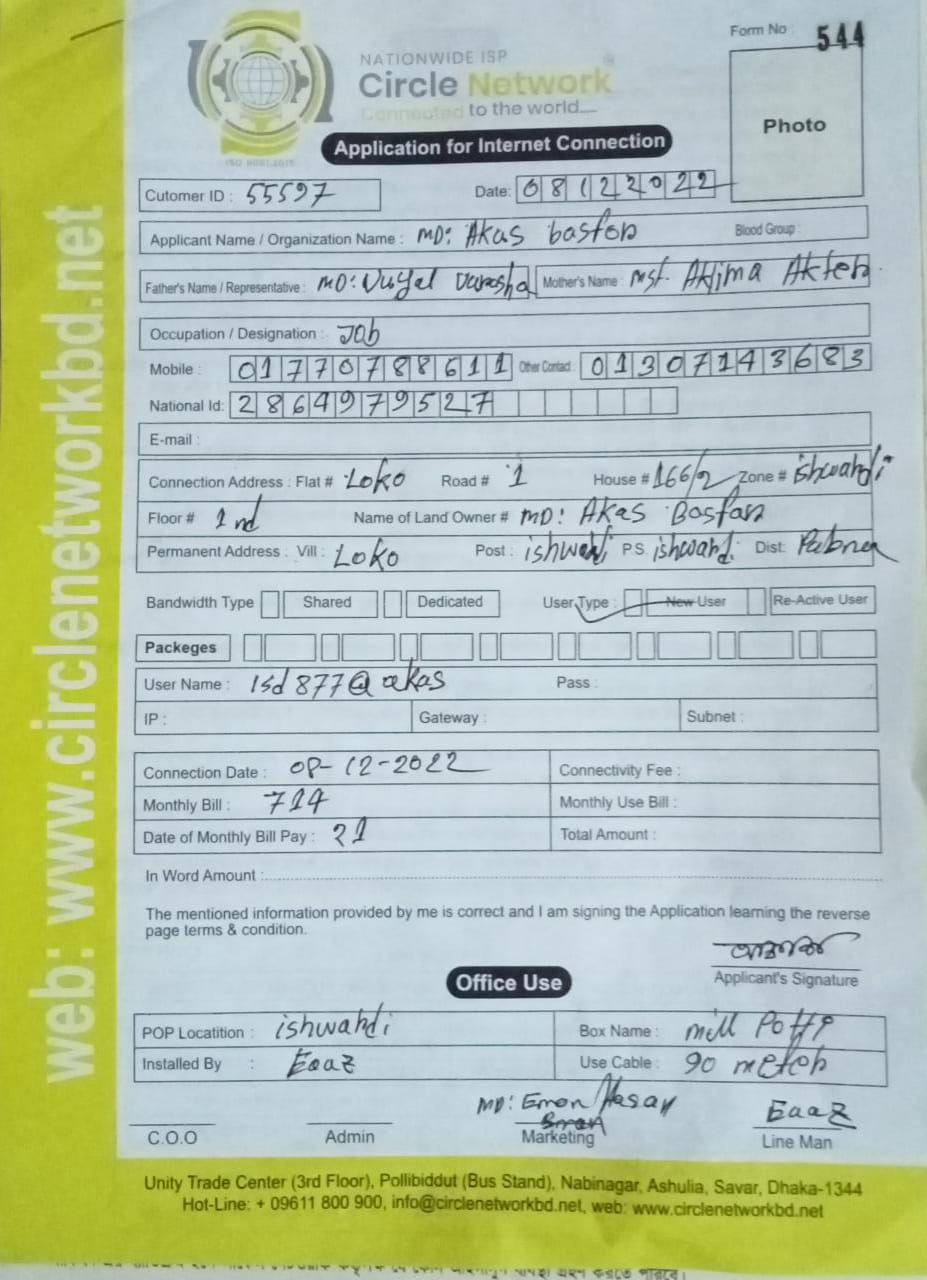 Form No : 544
NATIONWIDE ISP
Circle Network
Connected to the world....
ISO 9001:2015
Photo
Application for Internet Connection
Cutomer ID : 55597 Date: 08122022
Applicant Name / Organization Name : MD: Akas basfor Blood Group :
Father's Name / Representative : MD: Mother's Name : Mst. Aklima Akter
Occupation / Designation : Job
Mobile : 01770788611 Other Contact : 01307143683
National Id: 2864979527
E-mail :
Connection Address : Flat # Loko Road # 1 House # 166/2 Zone # ishwardi
Floor # 1nd Name of Land Owner # MD: Akas Basfor
Permanent Address : Vill : Loko Post : ishwardi P.S. ishwardi Dist: Pabna
Bandwidth Type Shared Dedicated User Type : New User Re-Active User
Packeges
User Name : Isd877@akas Pass :
IP : Gateway : Subnet :
Connection Date : 08-12-2022 Connectivity Fee :
Monthly Bill : 714 Monthly Use Bill :
Date of Monthly Bill Pay : 21 Total Amount :
In Word Amount :
The mentioned information provided by me is correct and I am signing the Application learning the reverse
page terms & condition.
Applicant's Signature
Office Use
POP Locatition : ishwardi Box Name : mill Potti
Installed By : Eaaz Use Cable : 90 meter
MD: Emon Hasan
Eaaz
C.O.O Admin Marketing Line Man
Unity Trade Center (3rd Floor), Pollibiddut (Bus Stand), Nabinagar, Ashulia, Savar, Dhaka-1344
Hot-Line: + 09611 800 900, info@circlenetworkbd.net, web: www.circlenetworkbd.net
web: www.circlenetworkbd.net